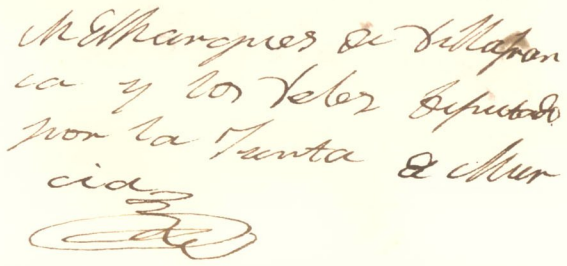 M El Marques de Villafran
ca y los Velez Diputado
por la Junta de Mur
cia